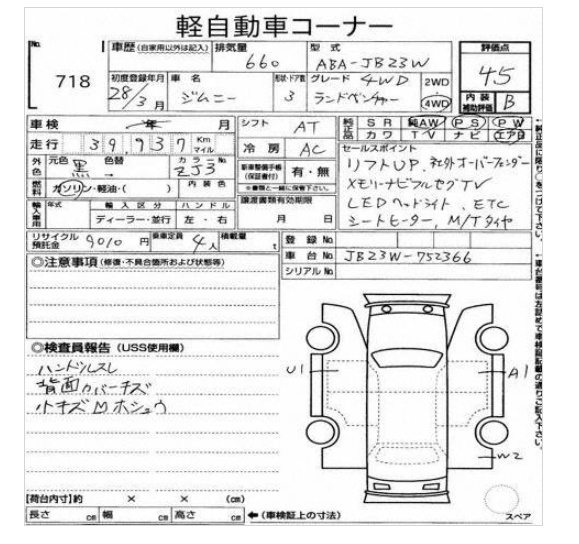 軽自動車コーナー
No. 718
車歴(自家用以外は記入) 排気量 660 型式 ABA-JB23W 評価点 45
初度登録年月 28/3月 車名 ジムニー 形状・ドア数 3 グレード 4WD ランドベンチャー 2WD 4WD 内装補助評価 B
車検 年 月 シフト AT 純正品 SR 純AW PS PW
カワ TV ナビ エアB
走行 39,937 Km マイル 冷房 AC
外色 元色 黒 色替 カラーNo. ZJ3 新車整備手帳(保証書付) 有・無
※書類と一緒に保管下さい。
燃料 ガソリン・軽油・( ) 内装色 譲渡書類有効期限 月 日
輸入車用 年式 輸入区分 ディーラー・並行 ハンドル 左・右
セールスポイント
リフトUP. 社外オーバーフェンダー
メモリーナビフルセグTV
LEDヘッドライト. ETC
シートヒーター, M/Tタイヤ
リサイクル預託金 9010 円 乗車定員 4人 積載量 t 登録No.
車台No. JB23W-752366
シリアルNo.
◎注意事項(修復・不具合箇所および状態等)
◎検査員報告(USS使用欄)
ハンドルスレ
背面カバーキズ
小キズ凹ホシュウ
U1 A1
W2
スペア
【荷台内寸】約 × × (cm)
長さ cm 幅 cm 高さ cm ←(車検証上の寸法)